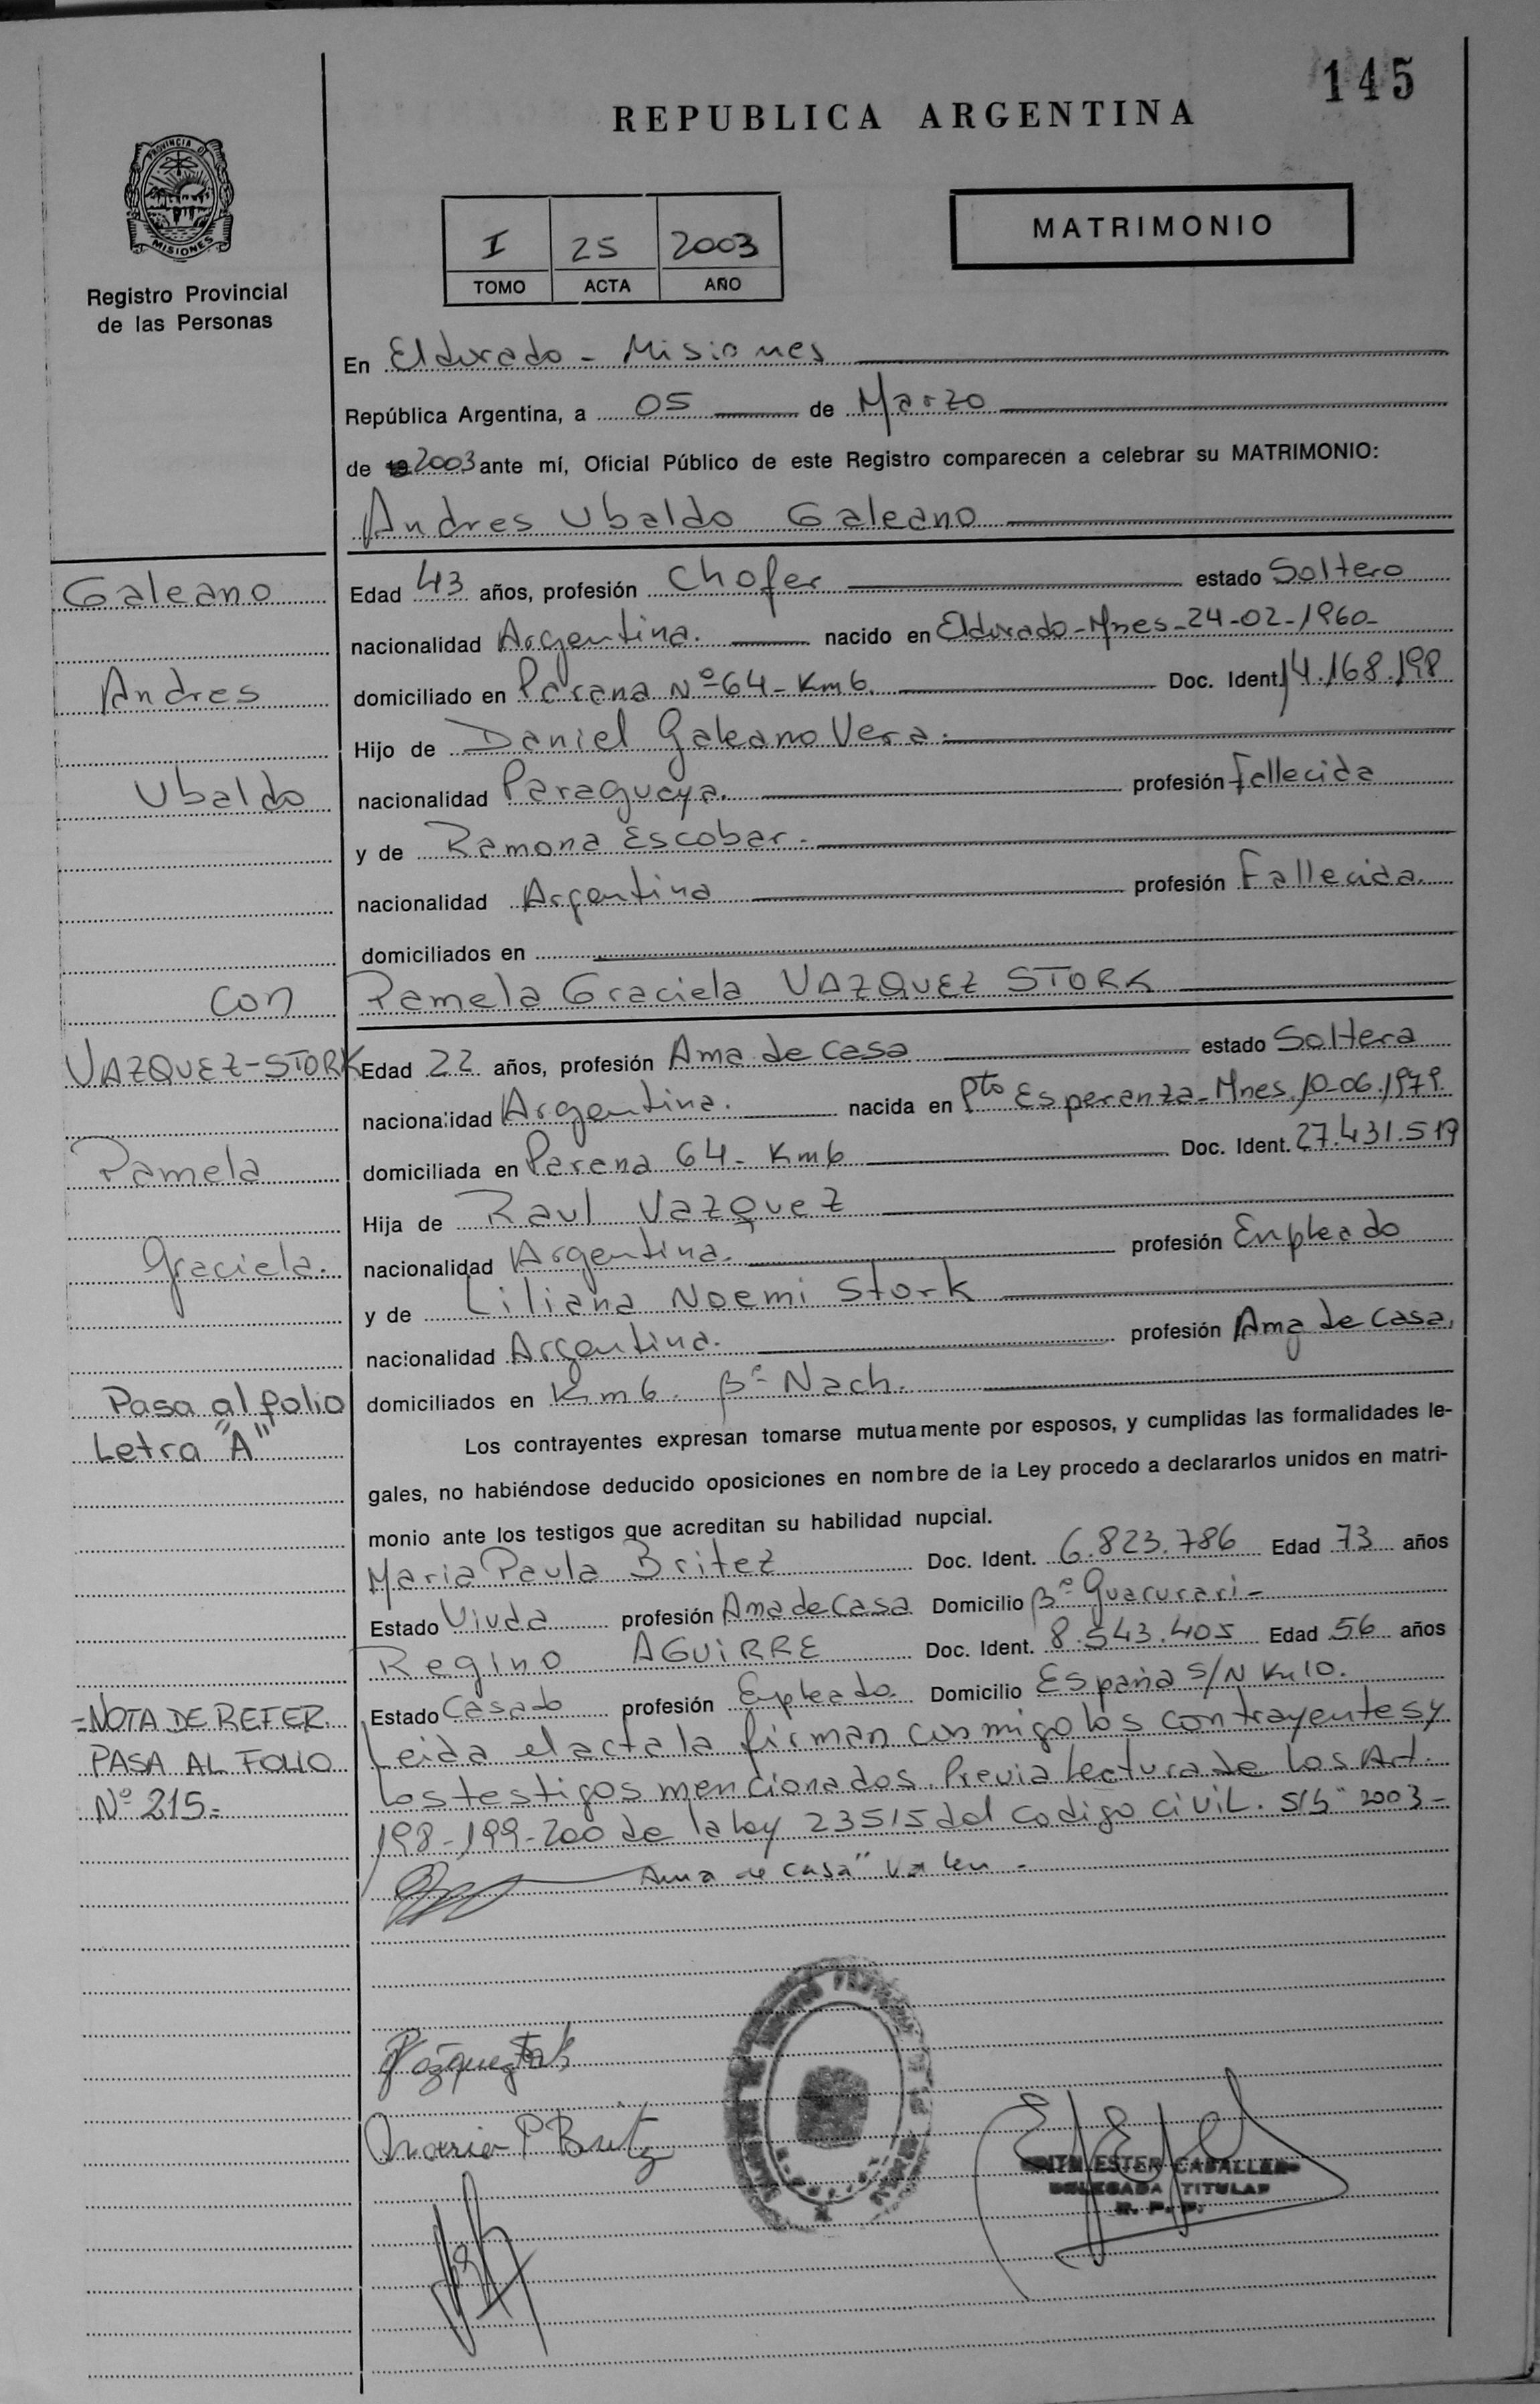 145
REPUBLICA ARGENTINA
PROVINCIA D
MISIONES
Registro Provincial
de las Personas
I 25 2003
TOMO ACTA AÑO
MATRIMONIO
En Eldorado - Misiones
República Argentina, a 05 de Marzo
de 2003 ante mí, Oficial Público de este Registro comparecen a celebrar su MATRIMONIO:
Andres Ubaldo Galeano
Edad 43 años, profesión Chofer estado Soltero
nacionalidad Argentina. nacido en Eldorado-Mnes-24-02-1960-
domiciliado en Parana Nº 64 - Km 6. Doc. Ident. 14.168.198
Hijo de Daniel Galeano Vera.
nacionalidad Paraguaya. profesión Fallecida
y de Ramona Escobar.
nacionalidad Argentina profesión Fallecida.
domiciliados en
Pamela Graciela VAZQUEZ STORK
Edad 22 años, profesión Ama de casa estado Soltera
nacionalidad Argentina. nacida en Pto Esperanza-Mnes, 10-06.1979.
domiciliada en Parana 64 - Km 6 Doc. Ident. 27.431.519
Hija de Raul Vazquez
nacionalidad Argentina. profesión Empleado
y de Liliana Noemi Stork
nacionalidad Argentina. profesión Ama de casa,
domiciliados en Km 6. Bº Nach.
Los contrayentes expresan tomarse mutuamente por esposos, y cumplidas las formalidades le-
gales, no habiéndose deducido oposiciones en nombre de la Ley procedo a declararlos unidos en matri-
monio ante los testigos que acreditan su habilidad nupcial.
Maria Paula Britez Doc. Ident. 6.823.786 Edad 73 años
Estado Viuda profesión Ama de Casa Domicilio Bº Guacurari-
Regino AGUIRRE Doc. Ident. 8.543.405 Edad 56 años
Estado Casado profesión Empleado. Domicilio España S/N Km 10.
Leida el acta la firman conmigo los contrayentes y
los testigos mencionados. Previa lectura de los Art.
198-199-200 de la ley 23515 del codigo civil. S/b " 2003-
Ama de casa" Valen -
Galeano
Andres
Ubaldo
con
VAZQUEZ-STORK
Pamela
Graciela.
Pasa al folio
Letra "A"
-NOTA DE REFER.
PASA AL FOLIO
Nº 215-
Maria P Britez
ESTER CABALLERO
DELEGADA TITULAR
R. P. P.